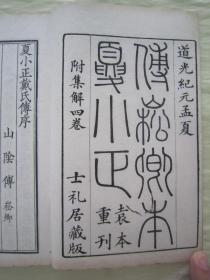 道光紀元孟夏
傅崧卿本
夏小正
袁本
重刊
附集解四卷
士礼居藏版
夏小正戴氏傳序
山陰傅 崧卿